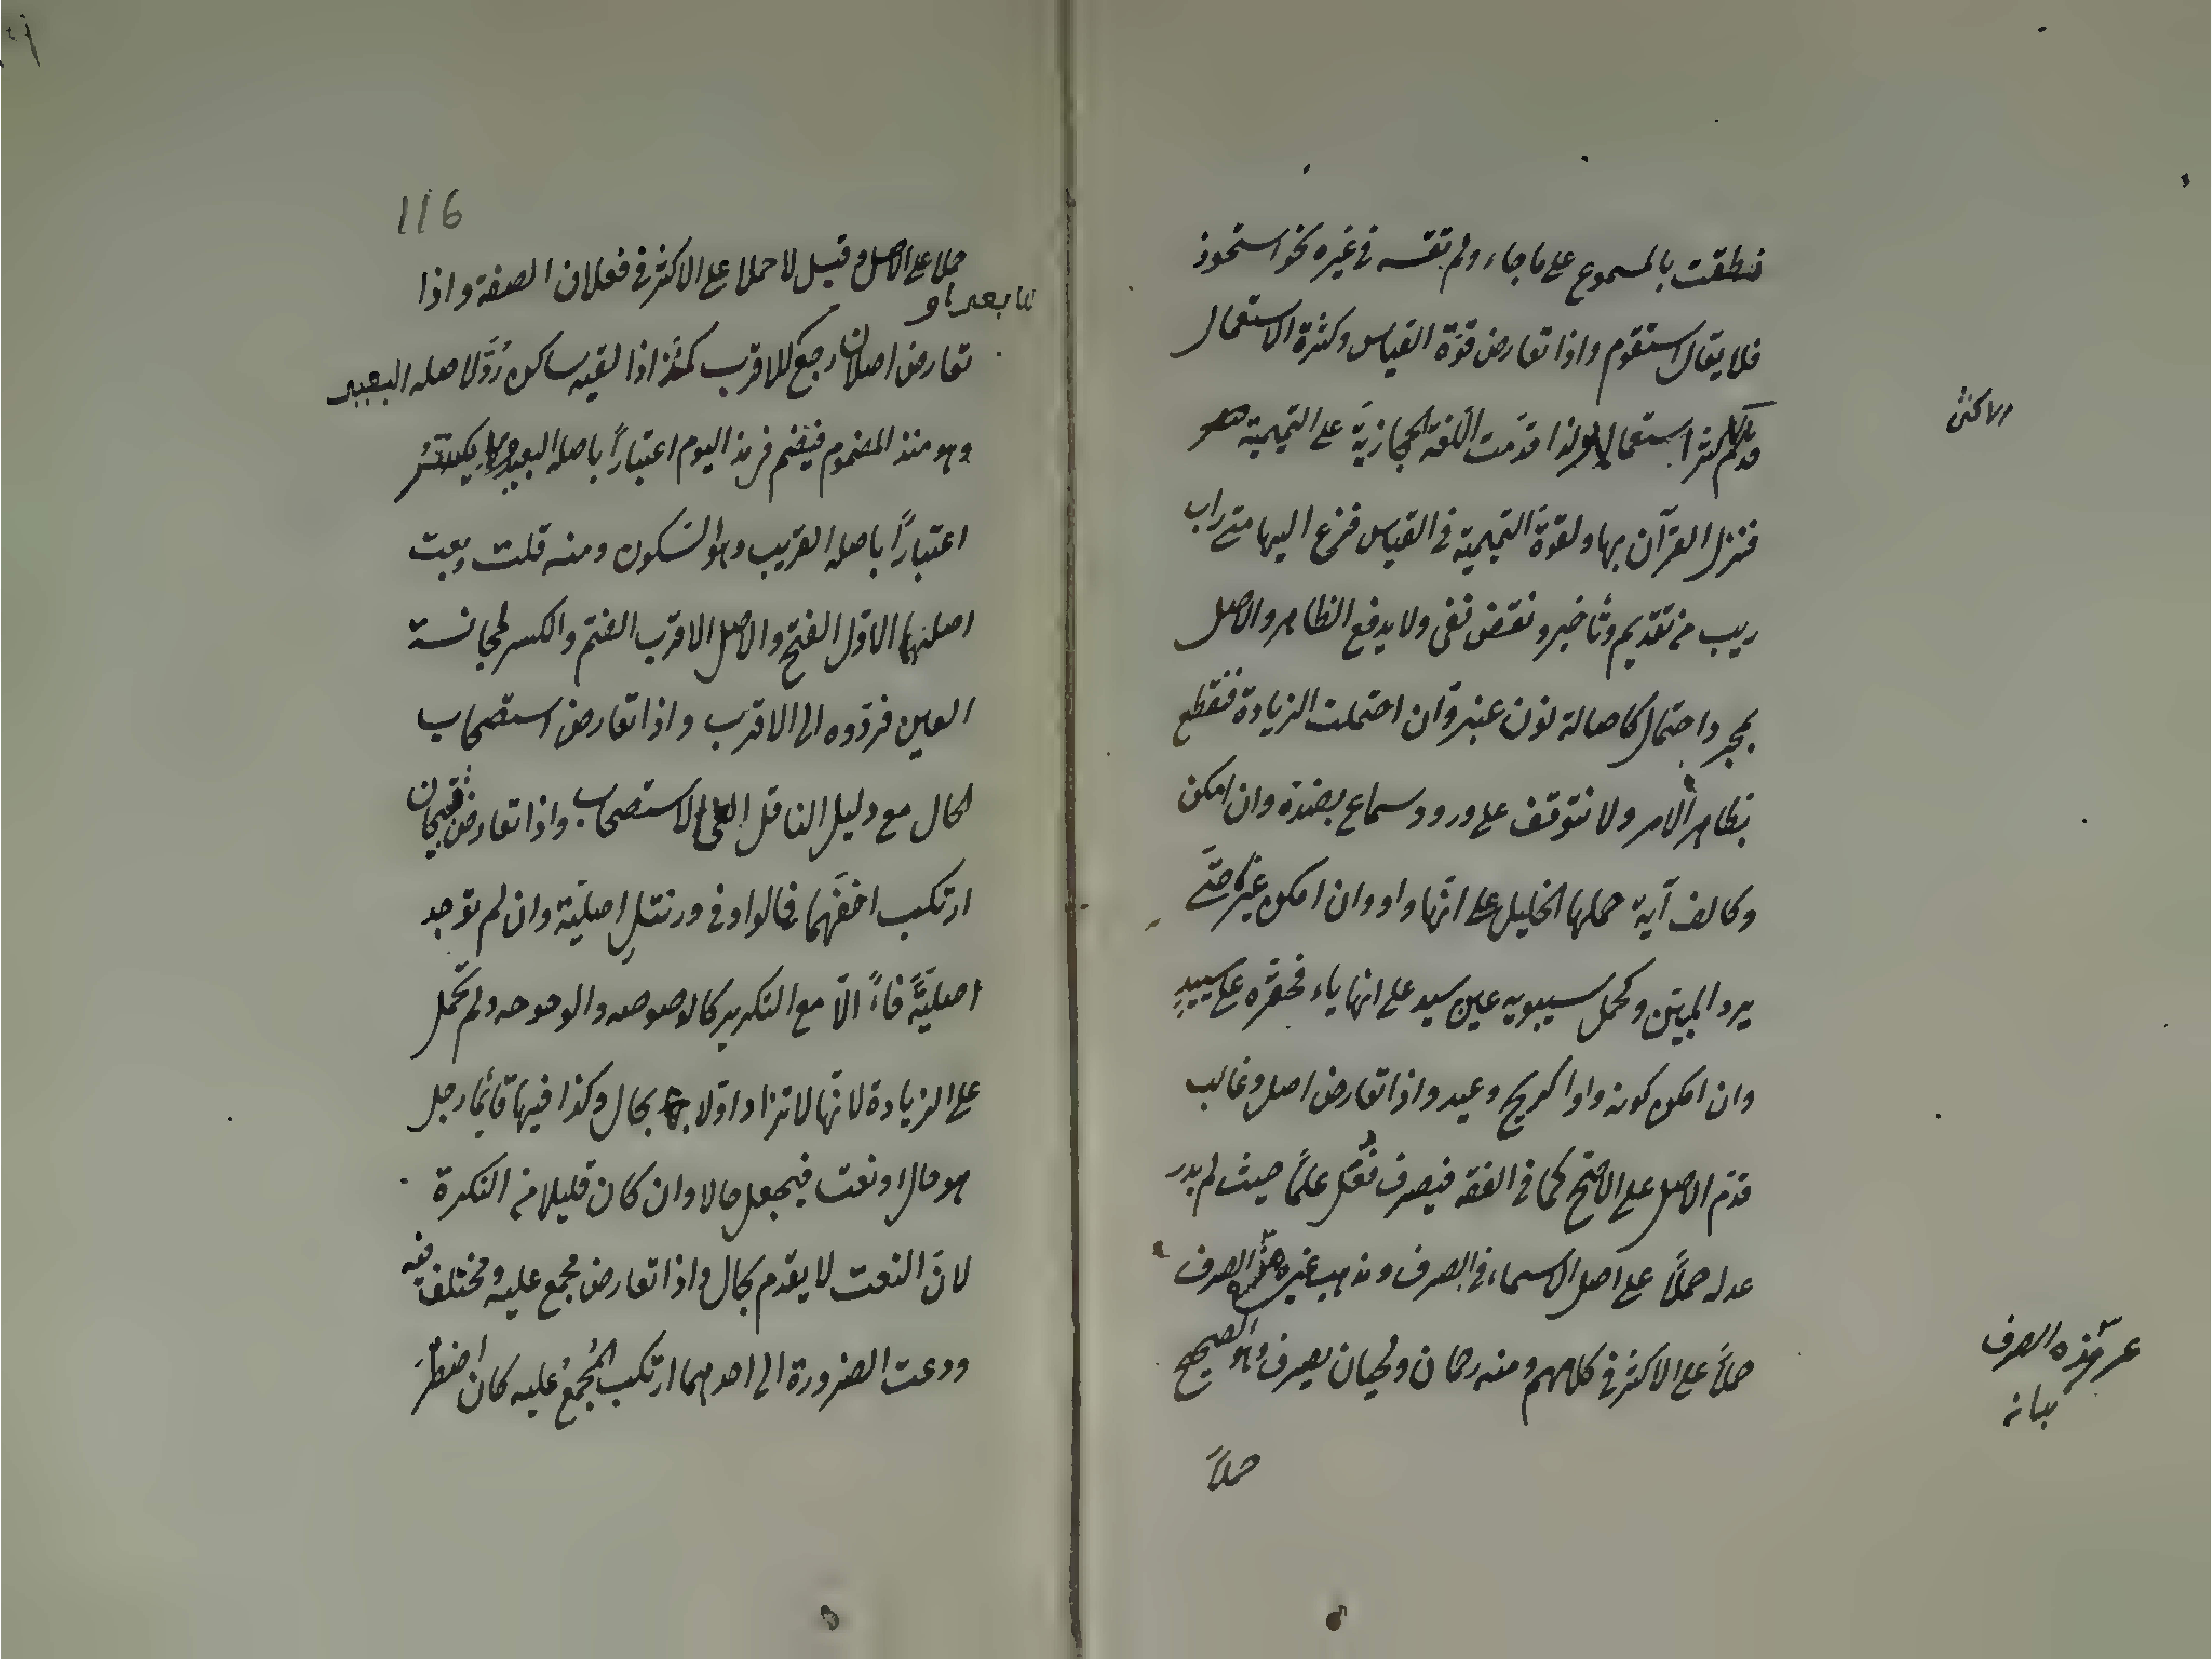 فنطقت بالمسموع على ما جاء ولم تقسه فى غيره نحو استحوذ
فلا يقال استقوم واذا تعارض قوّة القياس وكثرة الاستعمال
قدّم استعمالا ولذا قدّمت اللّغة الحجازيّة على التميمية
فنزل القرآن بها ولقوة التميمية فى القياس فزع اليها متى راب
ريب من تقديم وتأخير ونقض نفى ولا يدفع الظاهر والاصل
بمجرد احتمال كاصالة نون عنبر وان احتملت الزيادة فنقطع
بظاهر الامر ولا نتوقف على ورود سماع بضدّه وان امكن
وكالف آية حملها الخليل على انّها واو وان امكن غيره حتّى
يرد المبيّن وكحمل سيبويه عين سيد على انها ياء فحقّره على سييد
وان امكن كونه واوا كريح وعيد واذا تعارض اصل وغالب
قدّم الاصل على الاصح كما فى الفقه فيصرف فُعَل علمًا حيث لم يدر
عدله حملاً على اصل الاسماء فى الصرف ومذهب غيره الصرف
حملاً على الاكثر فى كلامهم ومنه رحمان ولحيان يصرف وهو الصحيح
حملاً
والاكثر
الصرف
116
حملا على الاصل وقيل لا حملا على الاكثر فى فعلان الصفة واذا
تعارض اصلان رجع للاقرب كمذ اذا لقيه ساكن رُدَّ لاصله البعيد
وهو منذ المضموم فيضم فى مذ اليوم اعتباراً باصله البعيد
اعتباراً باصله القريب وهو السّكون ومنه قلت وبعت
اصلهما الاوّل الفتح والاصل الاقرب الضّم والكسر لمجانسة
العين فردّوه الى الاقرب واذا تعارض استصحاب
الحال مع دليل الناقل الغى الاستصحاب واذا تعارض قبيحان
ارتكب اخفّهما فالواو فى ورنتل اصليّة وان لم توجد
اصليّةً فاءً الّا مع التكرير كالوصوصه والوحوحه ولم تحمل
على الزيادة لانّها لا تزاد اوّلا بحال وكذا فيها قائما رجل
هو حال او نعت فيجعل حالا وان كان قليلا من النكرة
لانّ النعت لا يقدم بحال واذا تعارض مجمع عليه ومختلف فيه
ودعت الضرورة الى احدهما ارتكب المُجمعُ عليه كان اضطر